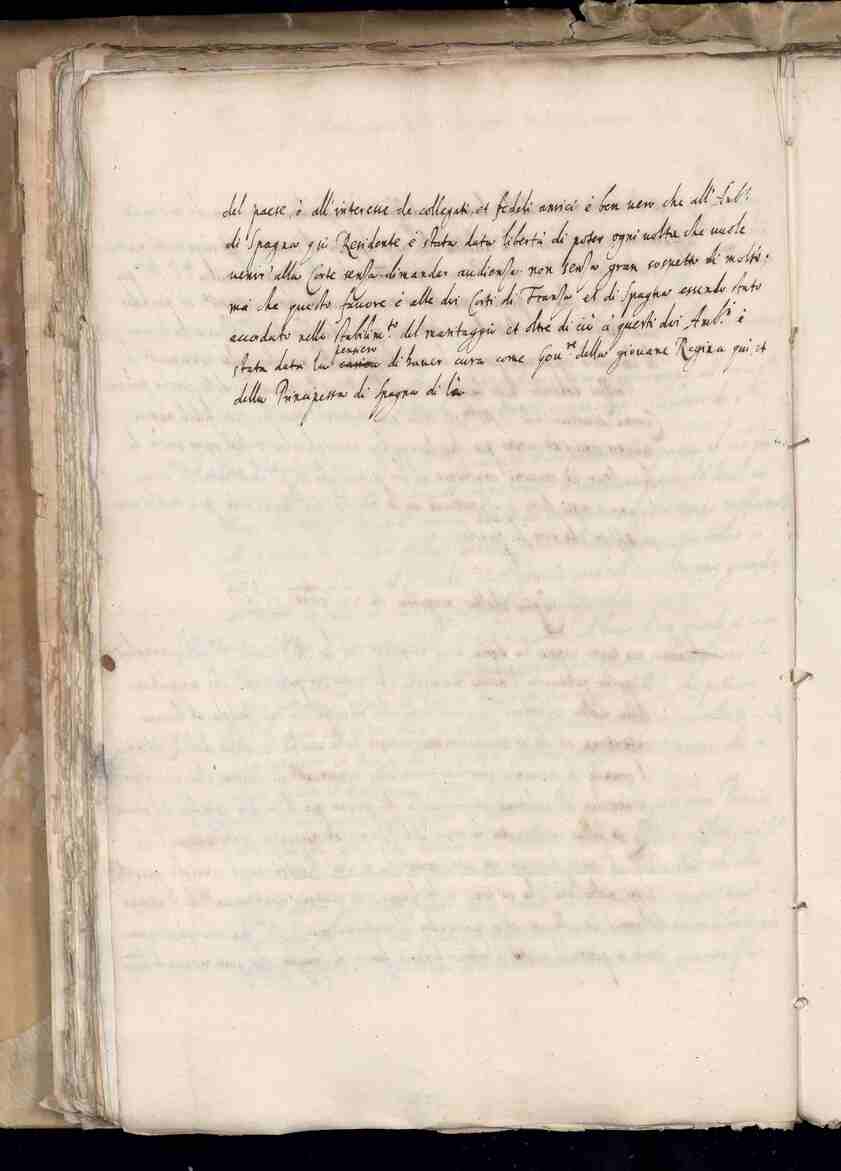 del paese, ò all'interesse de collegati, et fedeli amici è ben vero che all'Amb.r
di Spagna qui Residente è stata data libertà di poter ogni volta che vuole
venir' alla Corte senza dimandar audienza non senza gran sospetto di molti,
mà che questo favore è alle dui Corti di Franza et di Spagna essendo stato
accordato nello stabilim.to del maritaggio et oltre di ciò à questi dui Amb.ri è
stata data la pensiero di haver cura come Gov.re della giovane Regina qui, et
della Principessa di Spagna di là